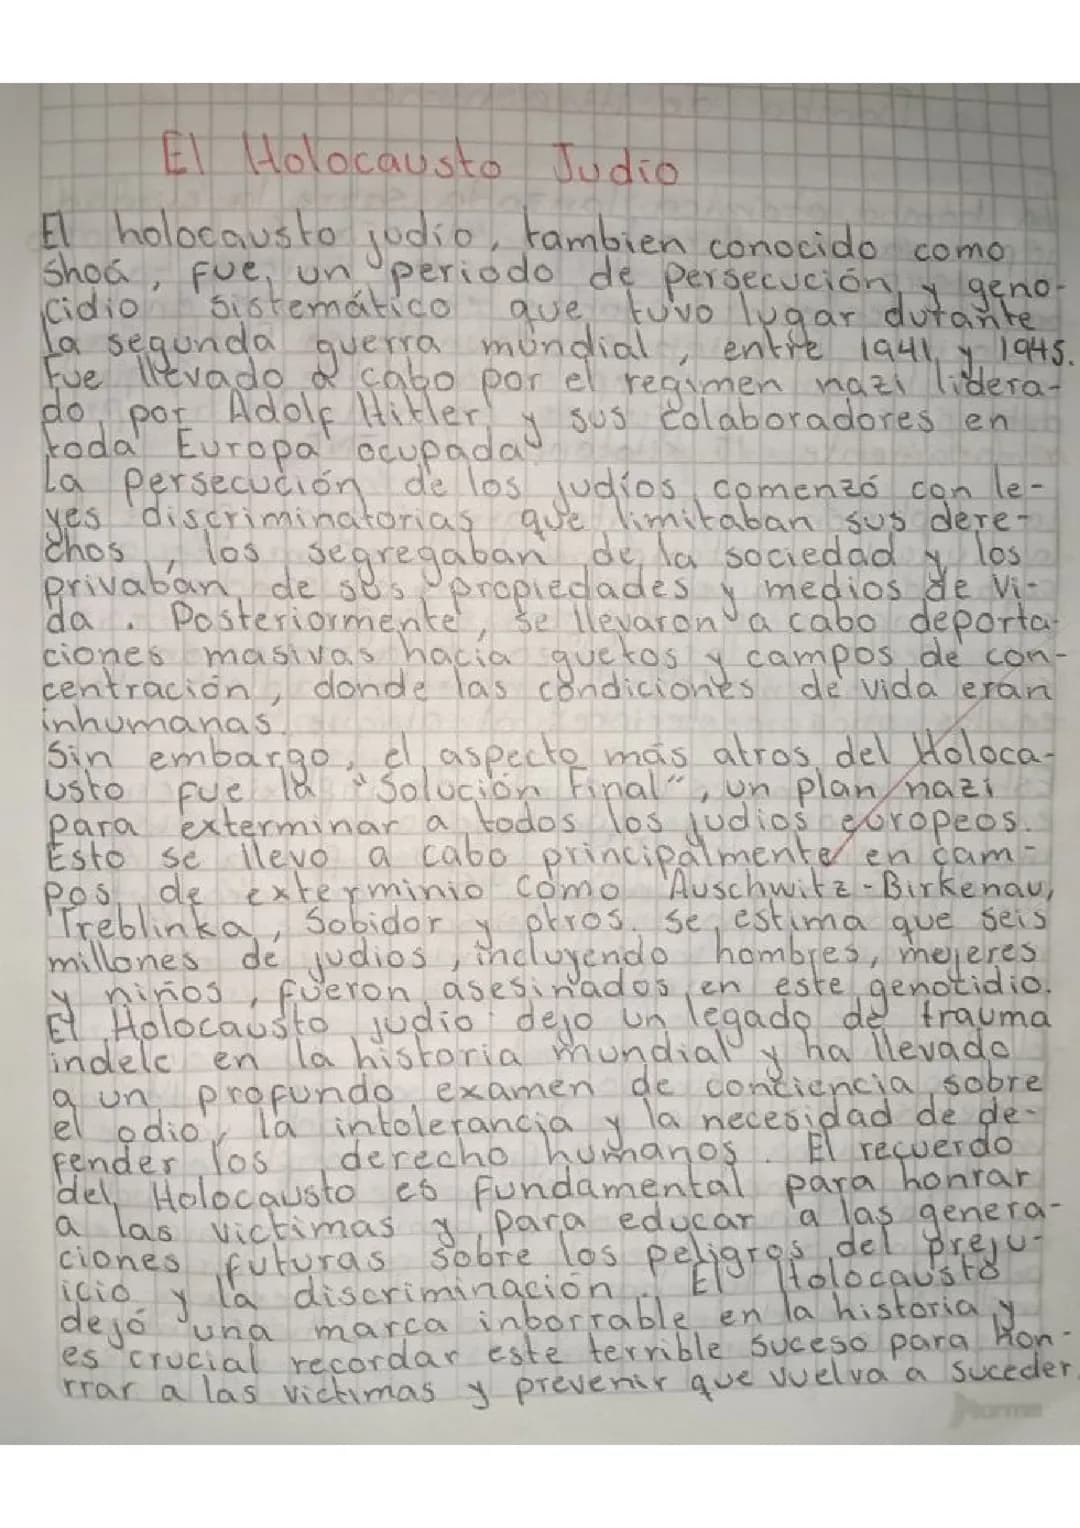 El Holocausto Judio
El holocausto judio, tambien conocido como
Shoá, fue, un periodo de persecución y geno-
cidio sistemático que tuvo lugar dutante
la segunda guerra mundial, entre 1941 y 1945.
Fue llevado a cabo por el regimen nazi lidera-
do por Adolf Hitler y sus colaboradores en
toda Europa ocupada
La persecución de los judíos comenzó con le-
yes discriminatorias que limitaban sus dere-
chos, los segregaban de la sociedad y los
privaban de sus propiedades y medios de vi-
da. Posteriormente, se llevaron a cabo deporta-
ciones masivas hacia guetos y campos de con-
centración, donde las condiciones de vida eran
inhumanas.
Sin embargo, el aspecto más atros del Holoca-
usto fue la "Solución Final", un plan nazi
para exterminar a todos los judios europeos.
Esto se llevo a cabo principalmente en cam-
pos de exterminio como Auschwitz-Birkenau,
Treblinka, Sobidor y otros. se estima que seis
millones de judios, incluyendo hombres, mejeres
y niños, fueron asesinados en este genotidio.
El Holocausto judio dejo un legado de trauma
indele en la historia mundial y ha llevado
a un profundo examen de contiencia sobre
el odio, la intolerancia y la necesidad de de-
fender los derecho humanos. El recuerdo
del Holocausto es fundamental para honrar
a las victimas y para educar a las genera-
ciones futuras sobre los peligros del preju-
icio y la discriminación. El Holocausto
dejó una marca inborrable en la historia y
es crucial recordar este terrible suceso para hon-
rrar a las victimas y prevenir que vuelva a suceder.
Norma